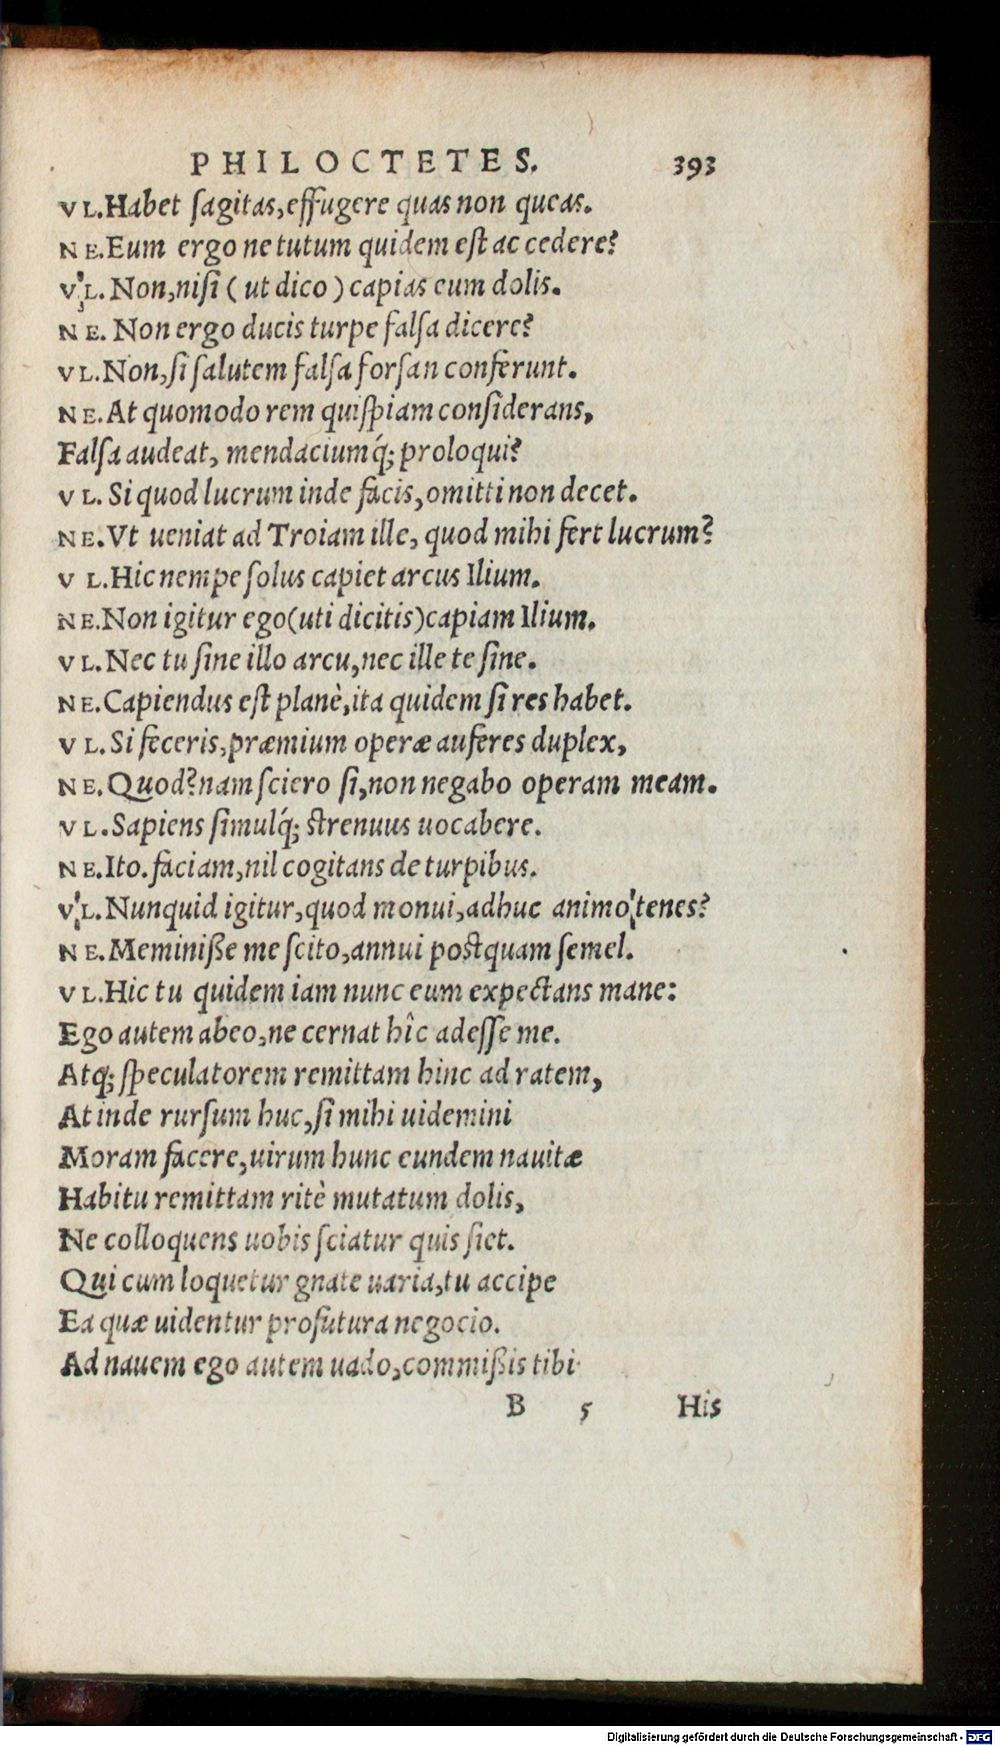 PHILOCTETES. 393
VL. Habet sagitas, effugere quas non queas.
NE. Eum ergo ne tutum quidem est accedere?
VL. Non, nisi (ut dico) capias eum dolis.
NE. Non ergo ducis turpe falsa dicere?
VL. Non, si salutem falsa forsan conferunt.
NE. At quomodo rem quispiam considerans,
Falsa audeat, mendaciumq́; proloqui?
VL. Si quod lucrum inde facis, omitti non decet.
NE. Vt ueniat ad Troiam ille, quod mihi fert lucrum?
VL. Hic nempe solus capiet arcus Ilium.
NE. Non igitur ego (uti dicitis) capiam Ilium.
VL. Nec tu sine illo arcu, nec ille te sine.
NE. Capiendus est planè, ita quidem si res habet.
VL. Si feceris, præmium operæ auferes duplex,
NE. Quod? nam sciero si, non negabo operam meam.
VL. Sapiens simulq́; strenuus uocabere.
NE. Ito. faciam, nil cogitans de turpibus.
VL. Nunquid igitur, quod monui, adhuc animo tenes?
NE. Meminiße me scito, annui postquam semel.
VL. Hic tu quidem iam nunc eum expectans mane:
Ego autem abeo, ne cernat hîc adesse me.
Atq; speculatorem remittam hinc ad ratem,
At inde rursum huc, si mihi uidemini
Moram facere, uirum hunc eundem nauitæ
Habitu remittam ritè mutatum dolis,
Ne colloquens uobis sciatur quis siet.
Qui cum loquetur gnate uaria, tu accipe
Ea quæ uidentur profutura negocio.
Ad nauem ego autem uado, commißis tibi
B 5 His
Digitalisierung gefördert durch die Deutsche Forschungsgemeinschaft - DFG